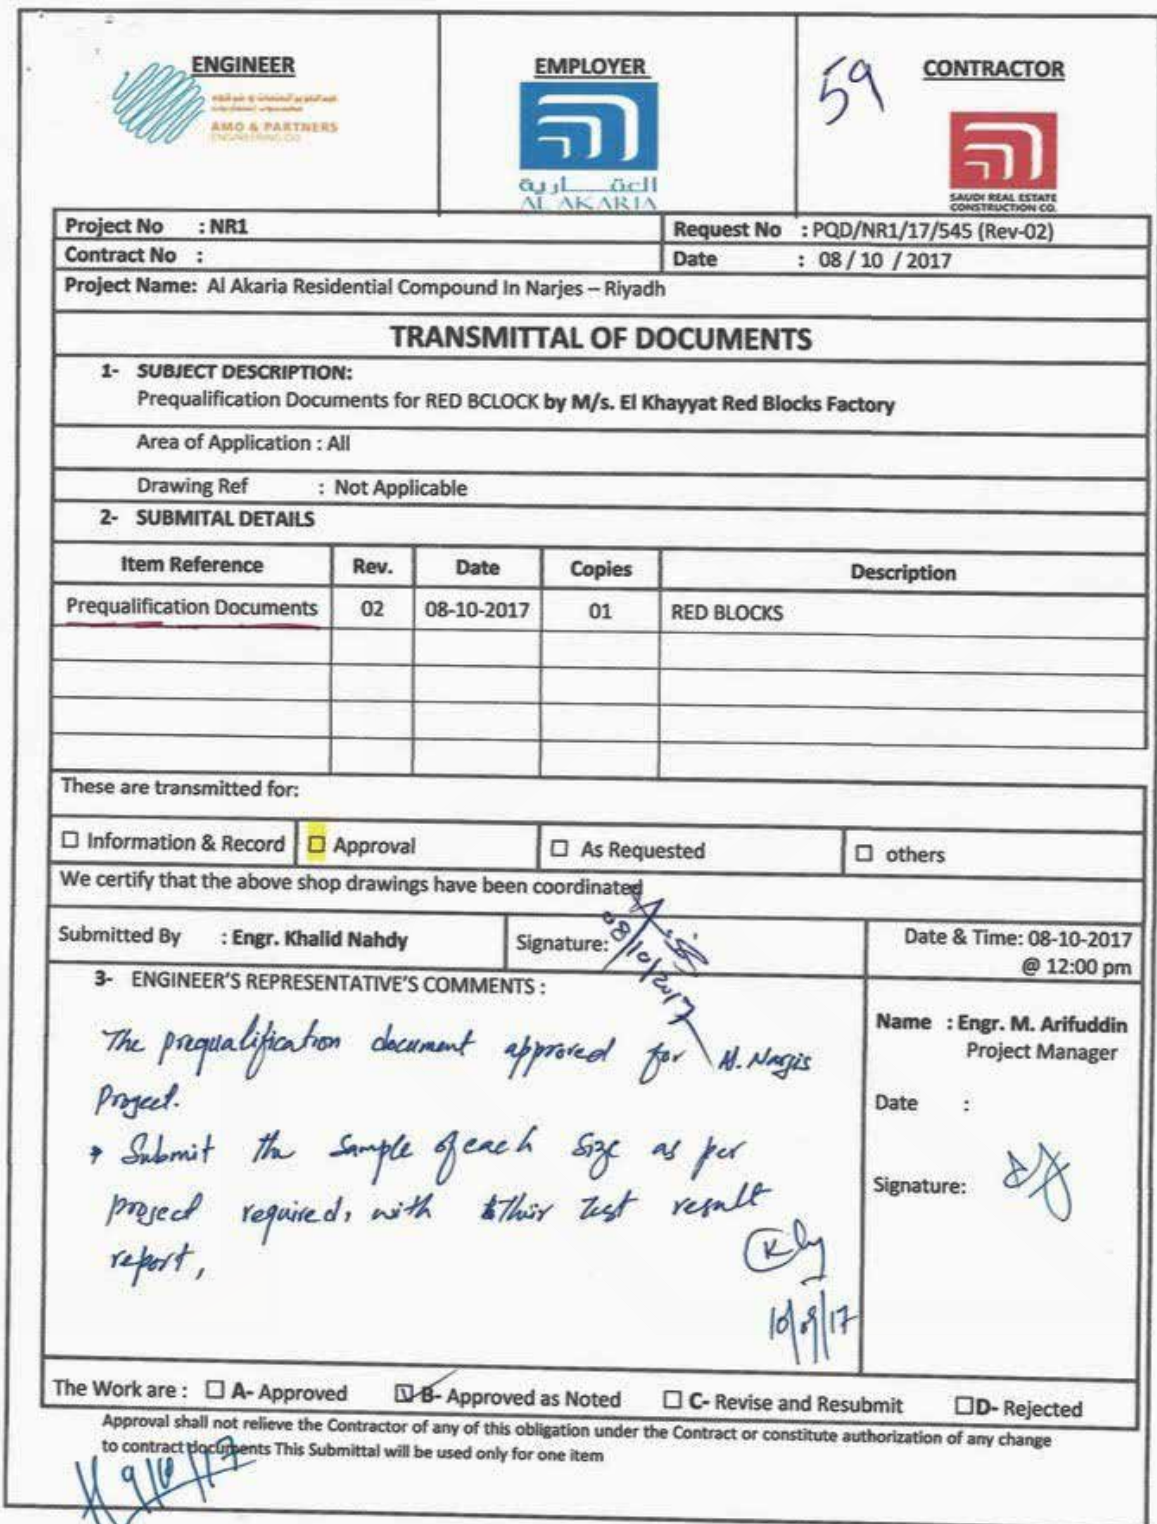 ENGINEER
AMO & PARTNERS
ENGINEERING CO.
EMPLOYER
العقـــارية
AL AKARIA
59
CONTRACTOR
SAUDI REAL ESTATE
CONSTRUCTION CO.
Project No : NR1
Request No : PQD/NR1/17/545 (Rev-02)
Contract No :
Date : 08 / 10 / 2017
Project Name: Al Akaria Residential Compound In Narjes – Riyadh
TRANSMITTAL OF DOCUMENTS
1- SUBJECT DESCRIPTION:
Prequalification Documents for RED BCLOCK by M/s. El Khayyat Red Blocks Factory
Area of Application : All
Drawing Ref : Not Applicable
2- SUBMITAL DETAILS
Item Reference Rev. Date Copies Description
Prequalification Documents 02 08-10-2017 01 RED BLOCKS
These are transmitted for:
☐ Information & Record ☐ Approval ☐ As Requested ☐ others
We certify that the above shop drawings have been coordinated
Submitted By : Engr. Khalid Nahdy Signature: 08/10/2017 Date & Time: 08-10-2017
@ 12:00 pm
3- ENGINEER'S REPRESENTATIVE'S COMMENTS :
The prequalification document approved for Al. Narjis
Project.
* Submit the sample of each size as per
project required, with their test result
report,
Name : Engr. M. Arifuddin
Project Manager
Date :
Signature:
The Work are : ☐ A- Approved ☑ B- Approved as Noted ☐ C- Revise and Resubmit ☐ D- Rejected
Approval shall not relieve the Contractor of any of this obligation under the Contract or constitute authorization of any change
to contract documents This Submittal will be used only for one item